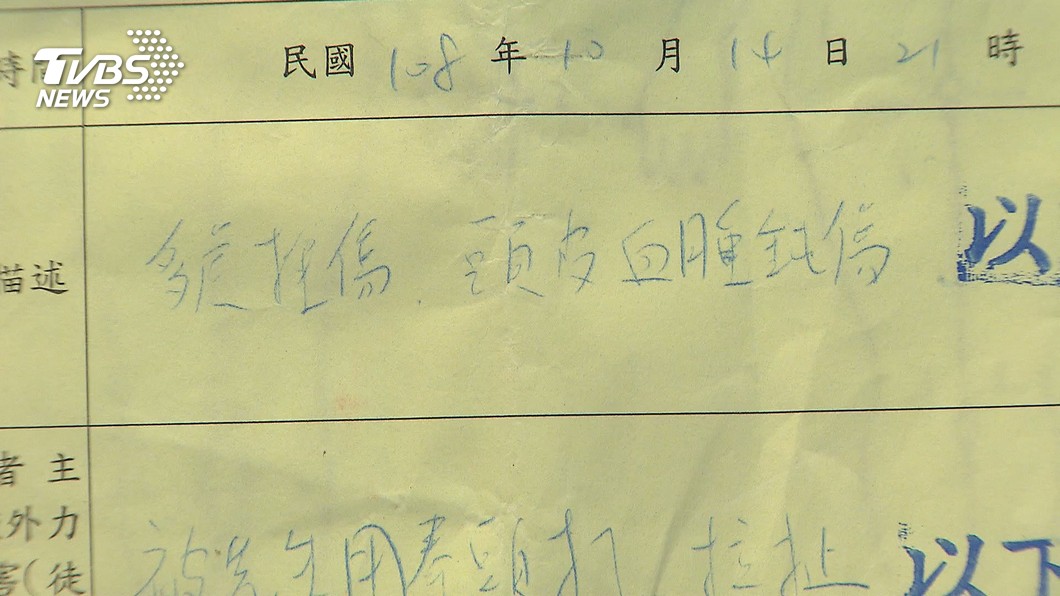 TVBS
NEWS
時間 民國 108 年 10 月 14 日 21 時
描述 多處挫傷、頭皮血腫鈍傷 以
者 主
外 力
害(徒
被先生用拳頭打 拉扯 以下